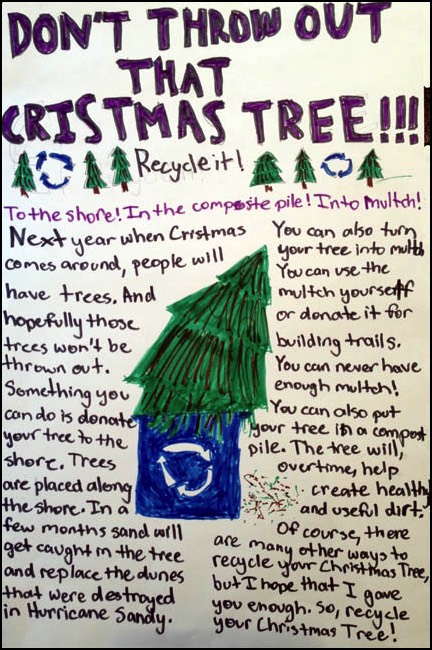 DON'T THROW OUT
THAT
CRISTMAS TREE!!!
Recycle it!
To the shore! In the composte pile! Into Multch!
Next year when Cristmas
comes around, people will
have trees. And
hopefully those
trees won't be
thrown out.
Something you
can do is donate
your tree to the
shore. Trees
are placed along
the shore. In a
few months sand will
get caught in the tree
and replace the dunes
that were destroyed
in Hurricane Sandy.
You can also turn
your tree into multch
You can use the
multch yourself
or donate it for
building trails.
You can never have
enough multch!
You can also put
your tree in a compost
pile. The tree will,
overtime, help
create healthy
and useful dirt.
Of course, there
are many other ways to
recycle your Christmas Tree,
but I hope that I gave
you enough. So, recycle
your Christmas Tree!